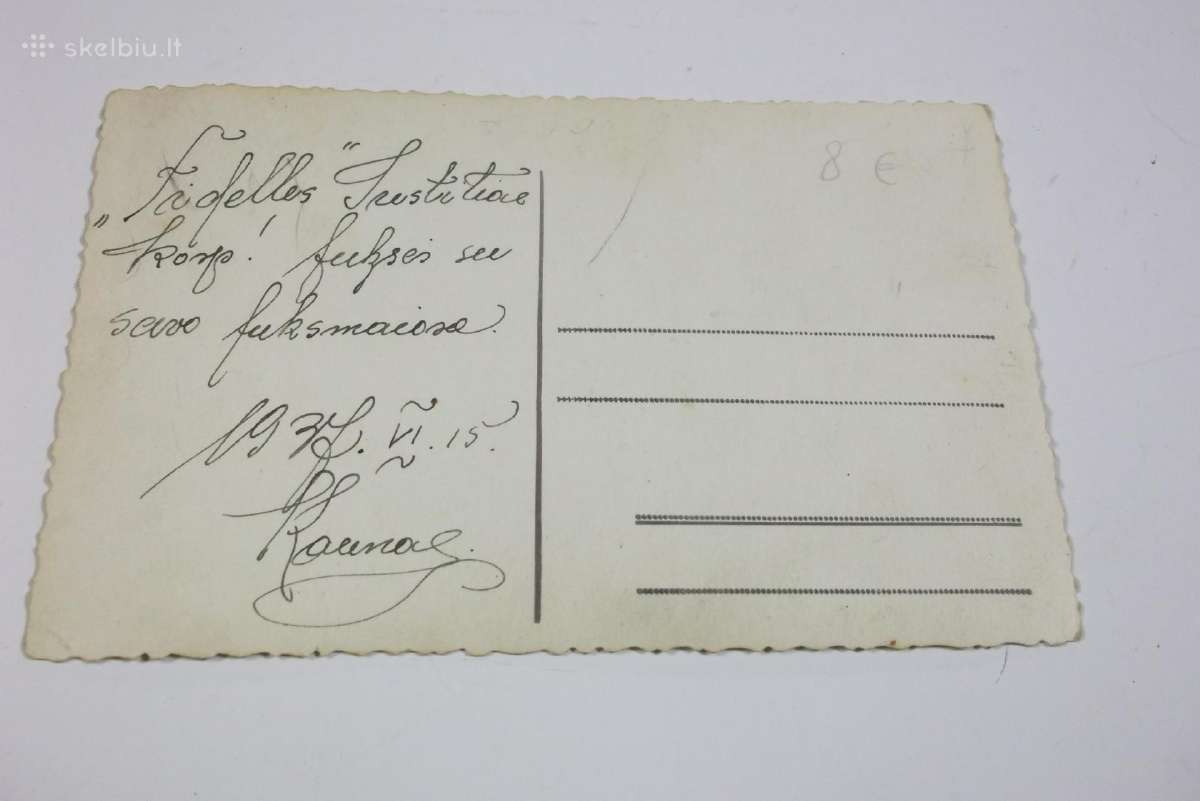 skelbiu.lt
8 €
„Fidelles Justitiae"
korp! fuksai su
savo fuksmaiore.
1937. VI. 15.
Kaunas.